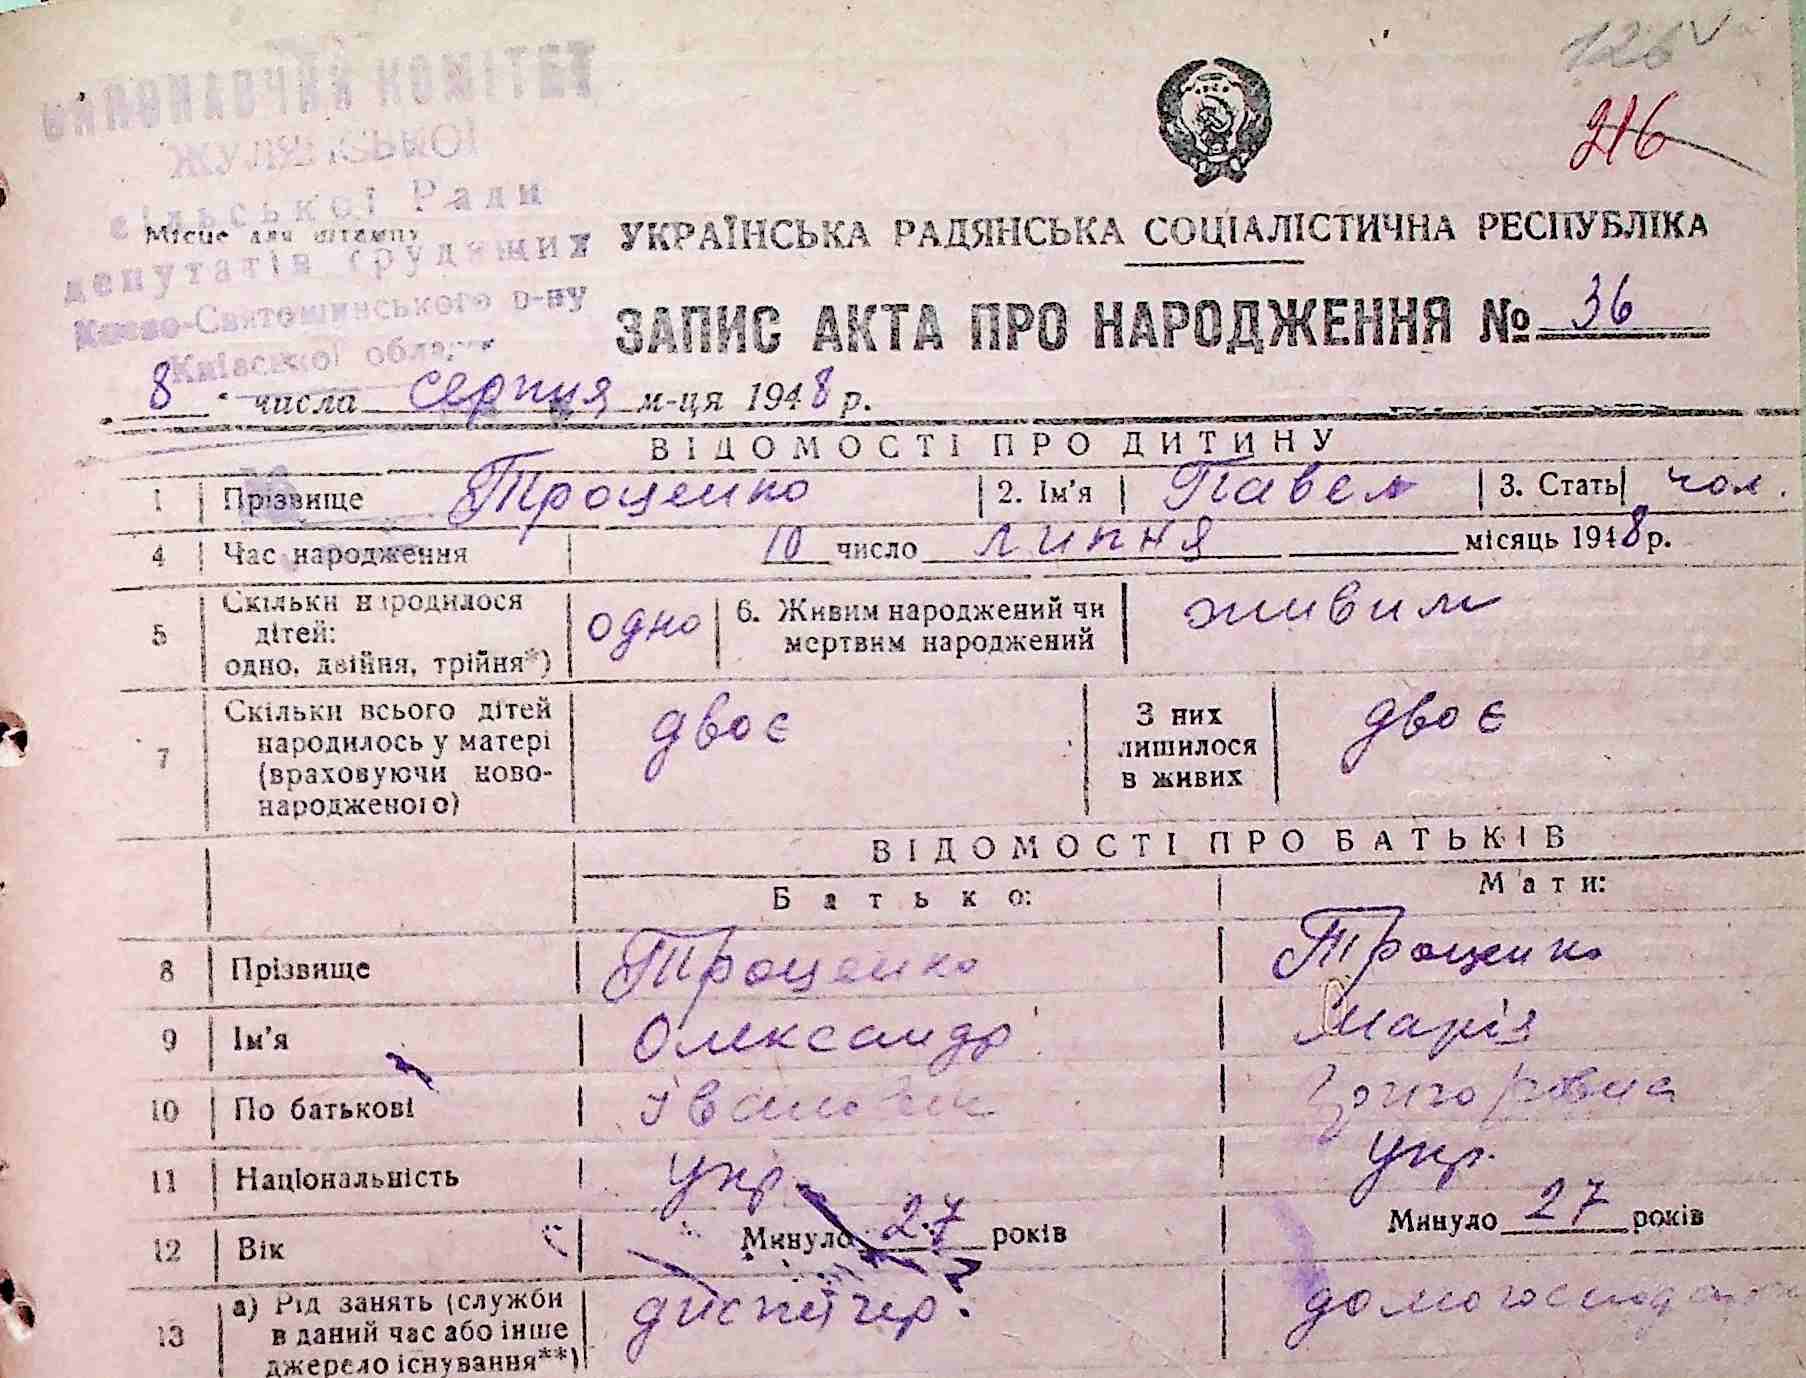 126
216
ВИКОНАВЧИЙ КОМІТЕТ
ЖУЛЯНСЬКОЇ
сільської Ради
Місце для штампу
депутатів трудящих
Києво-Святошинського р-ну
Київської області
УКРАЇНСЬКА РАДЯНСЬКА СОЦІАЛІСТИЧНА РЕСПУБЛІКА
ЗАПИС АКТА ПРО НАРОДЖЕННЯ № 36
8 числа серпня м-ця 1948 р.
ВІДОМОСТІ ПРО ДИТИНУ
1 Прізвище Троценко 2. Ім'я Павел 3. Стать чол.
4 Час народження 10 число липня місяць 1948 р.
5 Скільки народилося дітей: одно, двійня, трійня*) одно 6. Живим народжений чи мертвим народжений живим
7 Скільки всього дітей народилось у матері (враховуючи ново-народженого) двоє З них лишилося в живих двоє
ВІДОМОСТІ ПРО БАТЬКІВ
Батько: Мати:
8 Прізвище Троценко Троценко
9 Ім'я Олександр Марія
10 По батькові Іванович Григоровна
11 Національність укр. укр.
12 Вік Минуло 27 років Минуло 27 років
13 а) Рід занять (служби в даний час або інше джерело існування**) диспетчер.